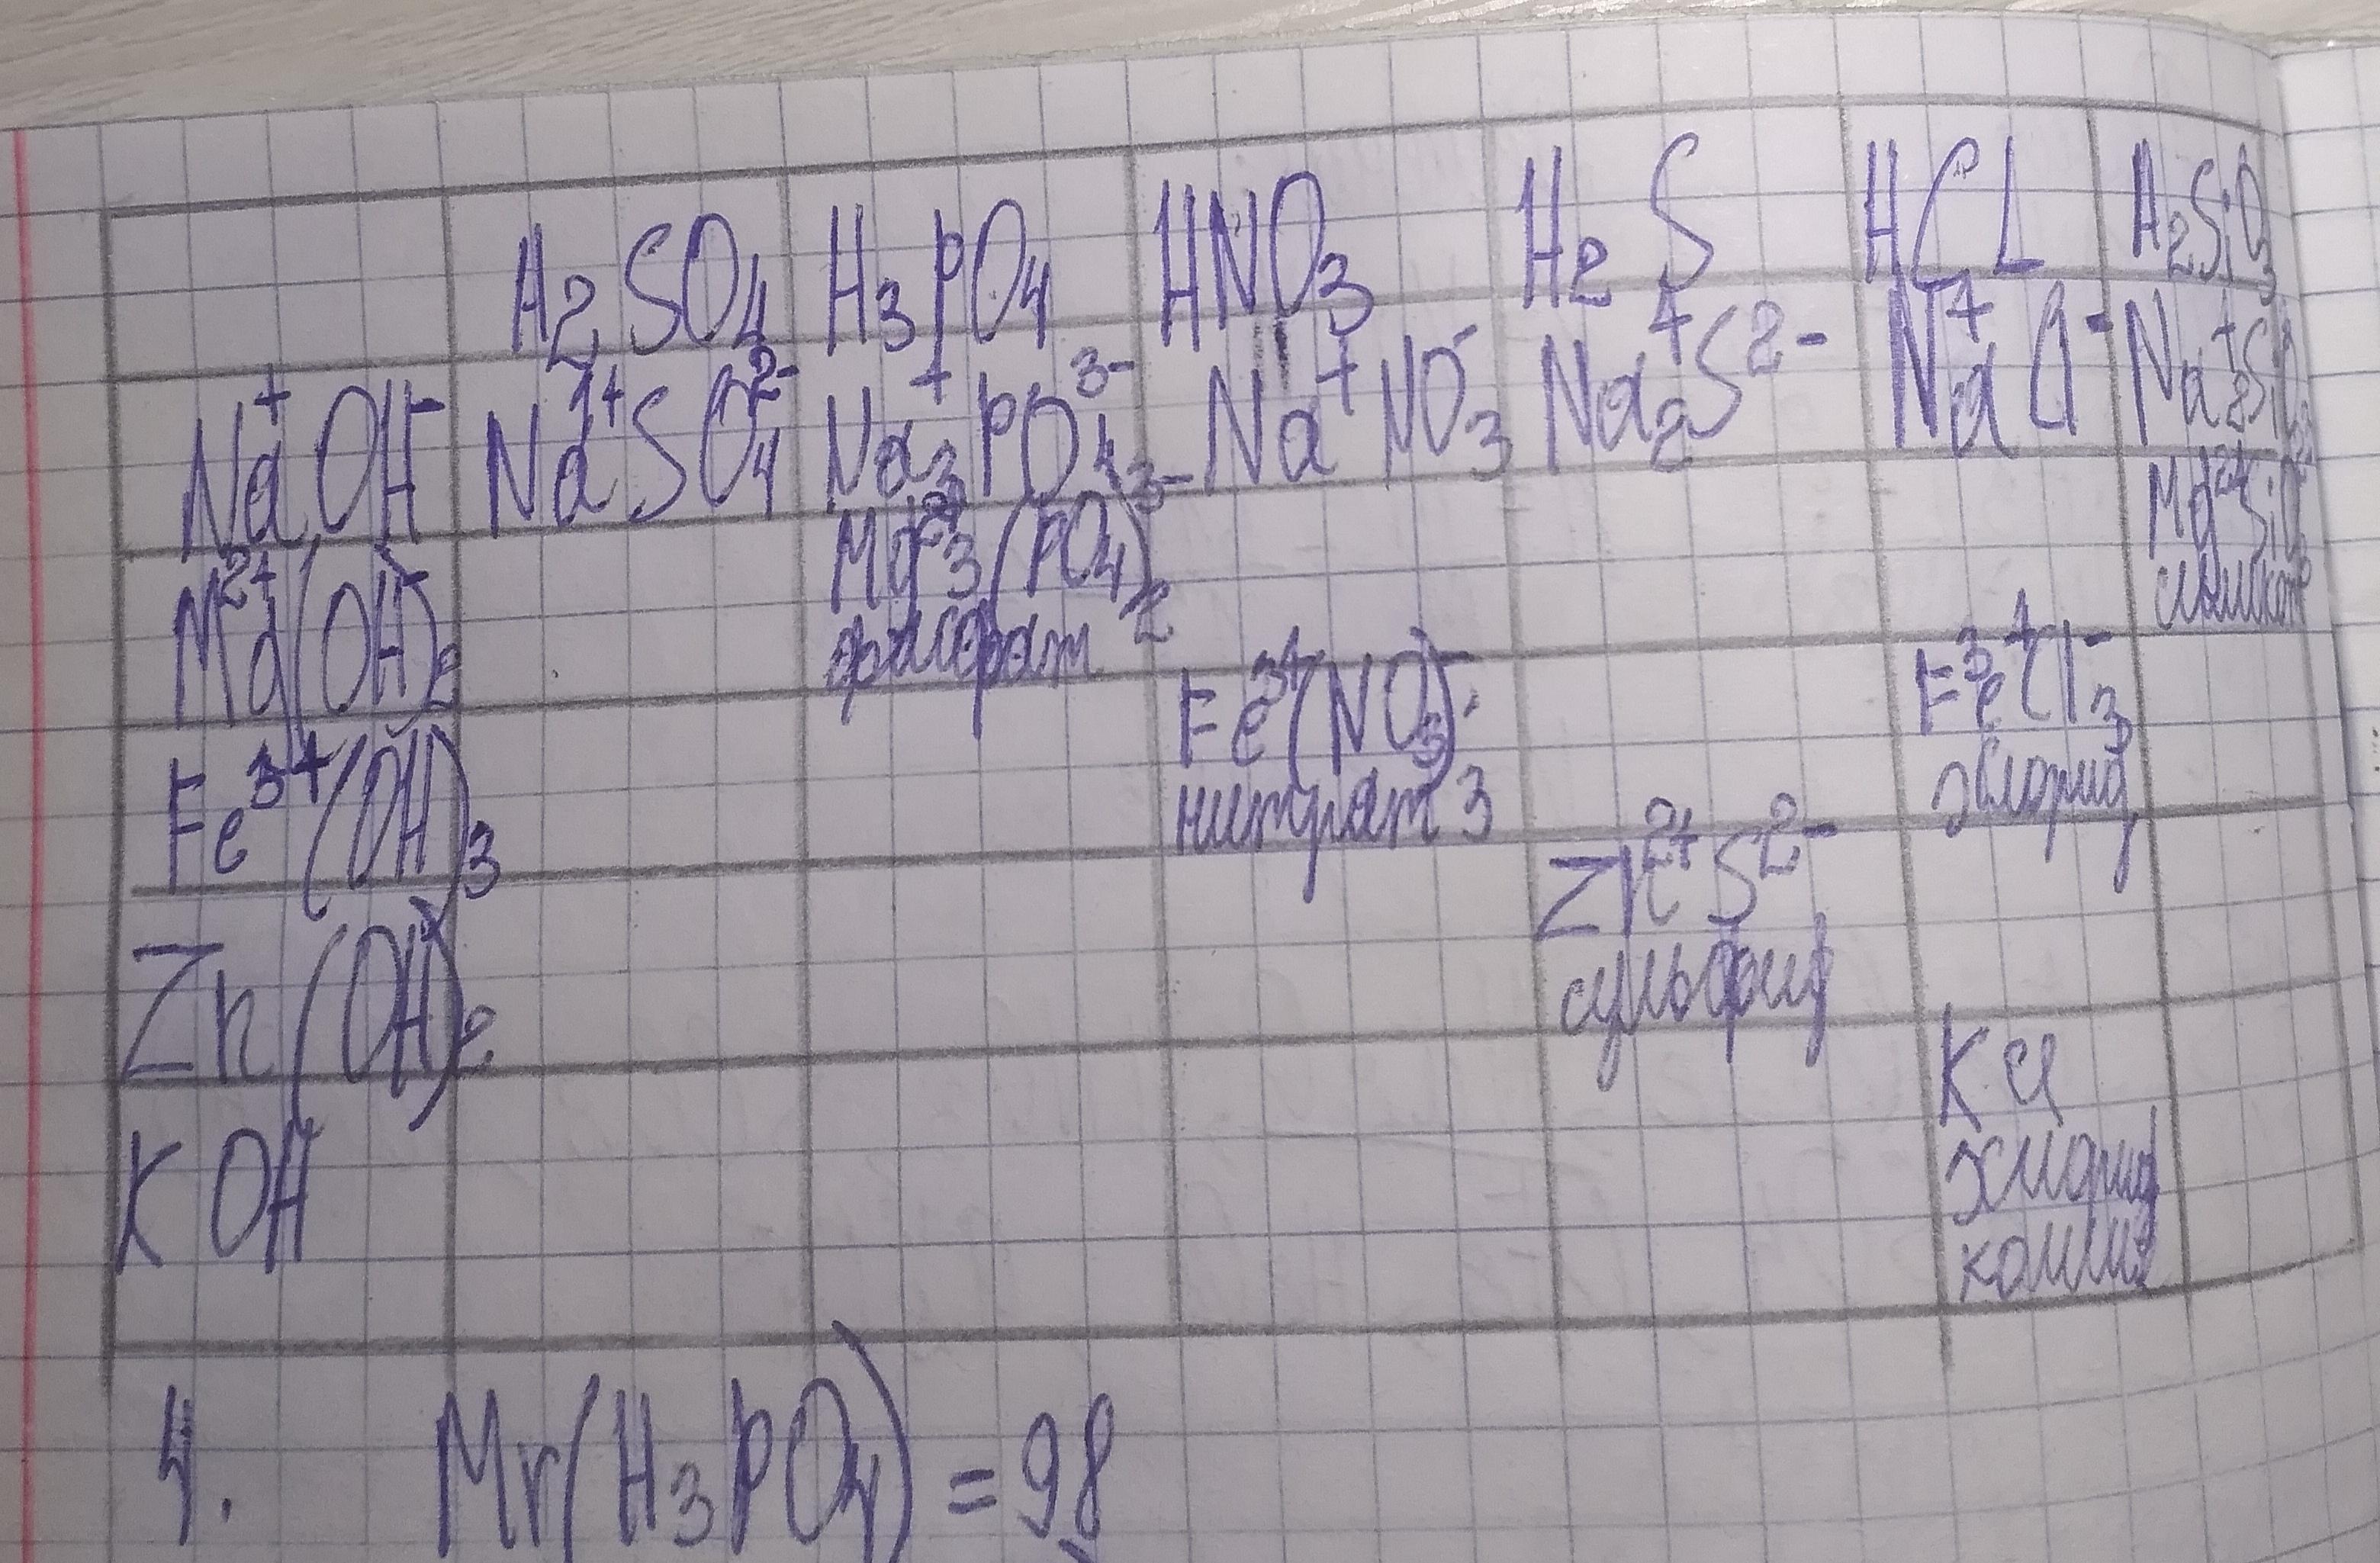 H₂SO₄ H₃PO₄ HNO₃ H₂S HCL H₂SiO₃
Na⁺OH⁻ Na¹⁺SO₄²⁻ Na₃⁺PO₄³⁻ Na⁺NO₃⁻ Na₂⁺S²⁻ Na⁺Cl⁻ Na₂⁺SiO₃
Mg²⁺(OH)₂⁻ Mg₃²⁺(PO₄)₂³⁻ Mg²⁺SiO₃²⁻
фасфат силикат
Fe³⁺(OH)₃⁻ Fe³⁺(NO₃)₃⁻ Fe³⁺Cl₃⁻
нитрат хлорид
Zn(OH)₂ Zn²⁺S²⁻
сульфид
KOH KCl
хлорид
калия
4. Mr(H₃PO₄) = 98